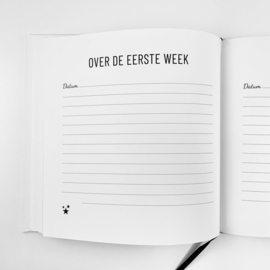 OVER DE EERSTE WEEK
Datum
Datum